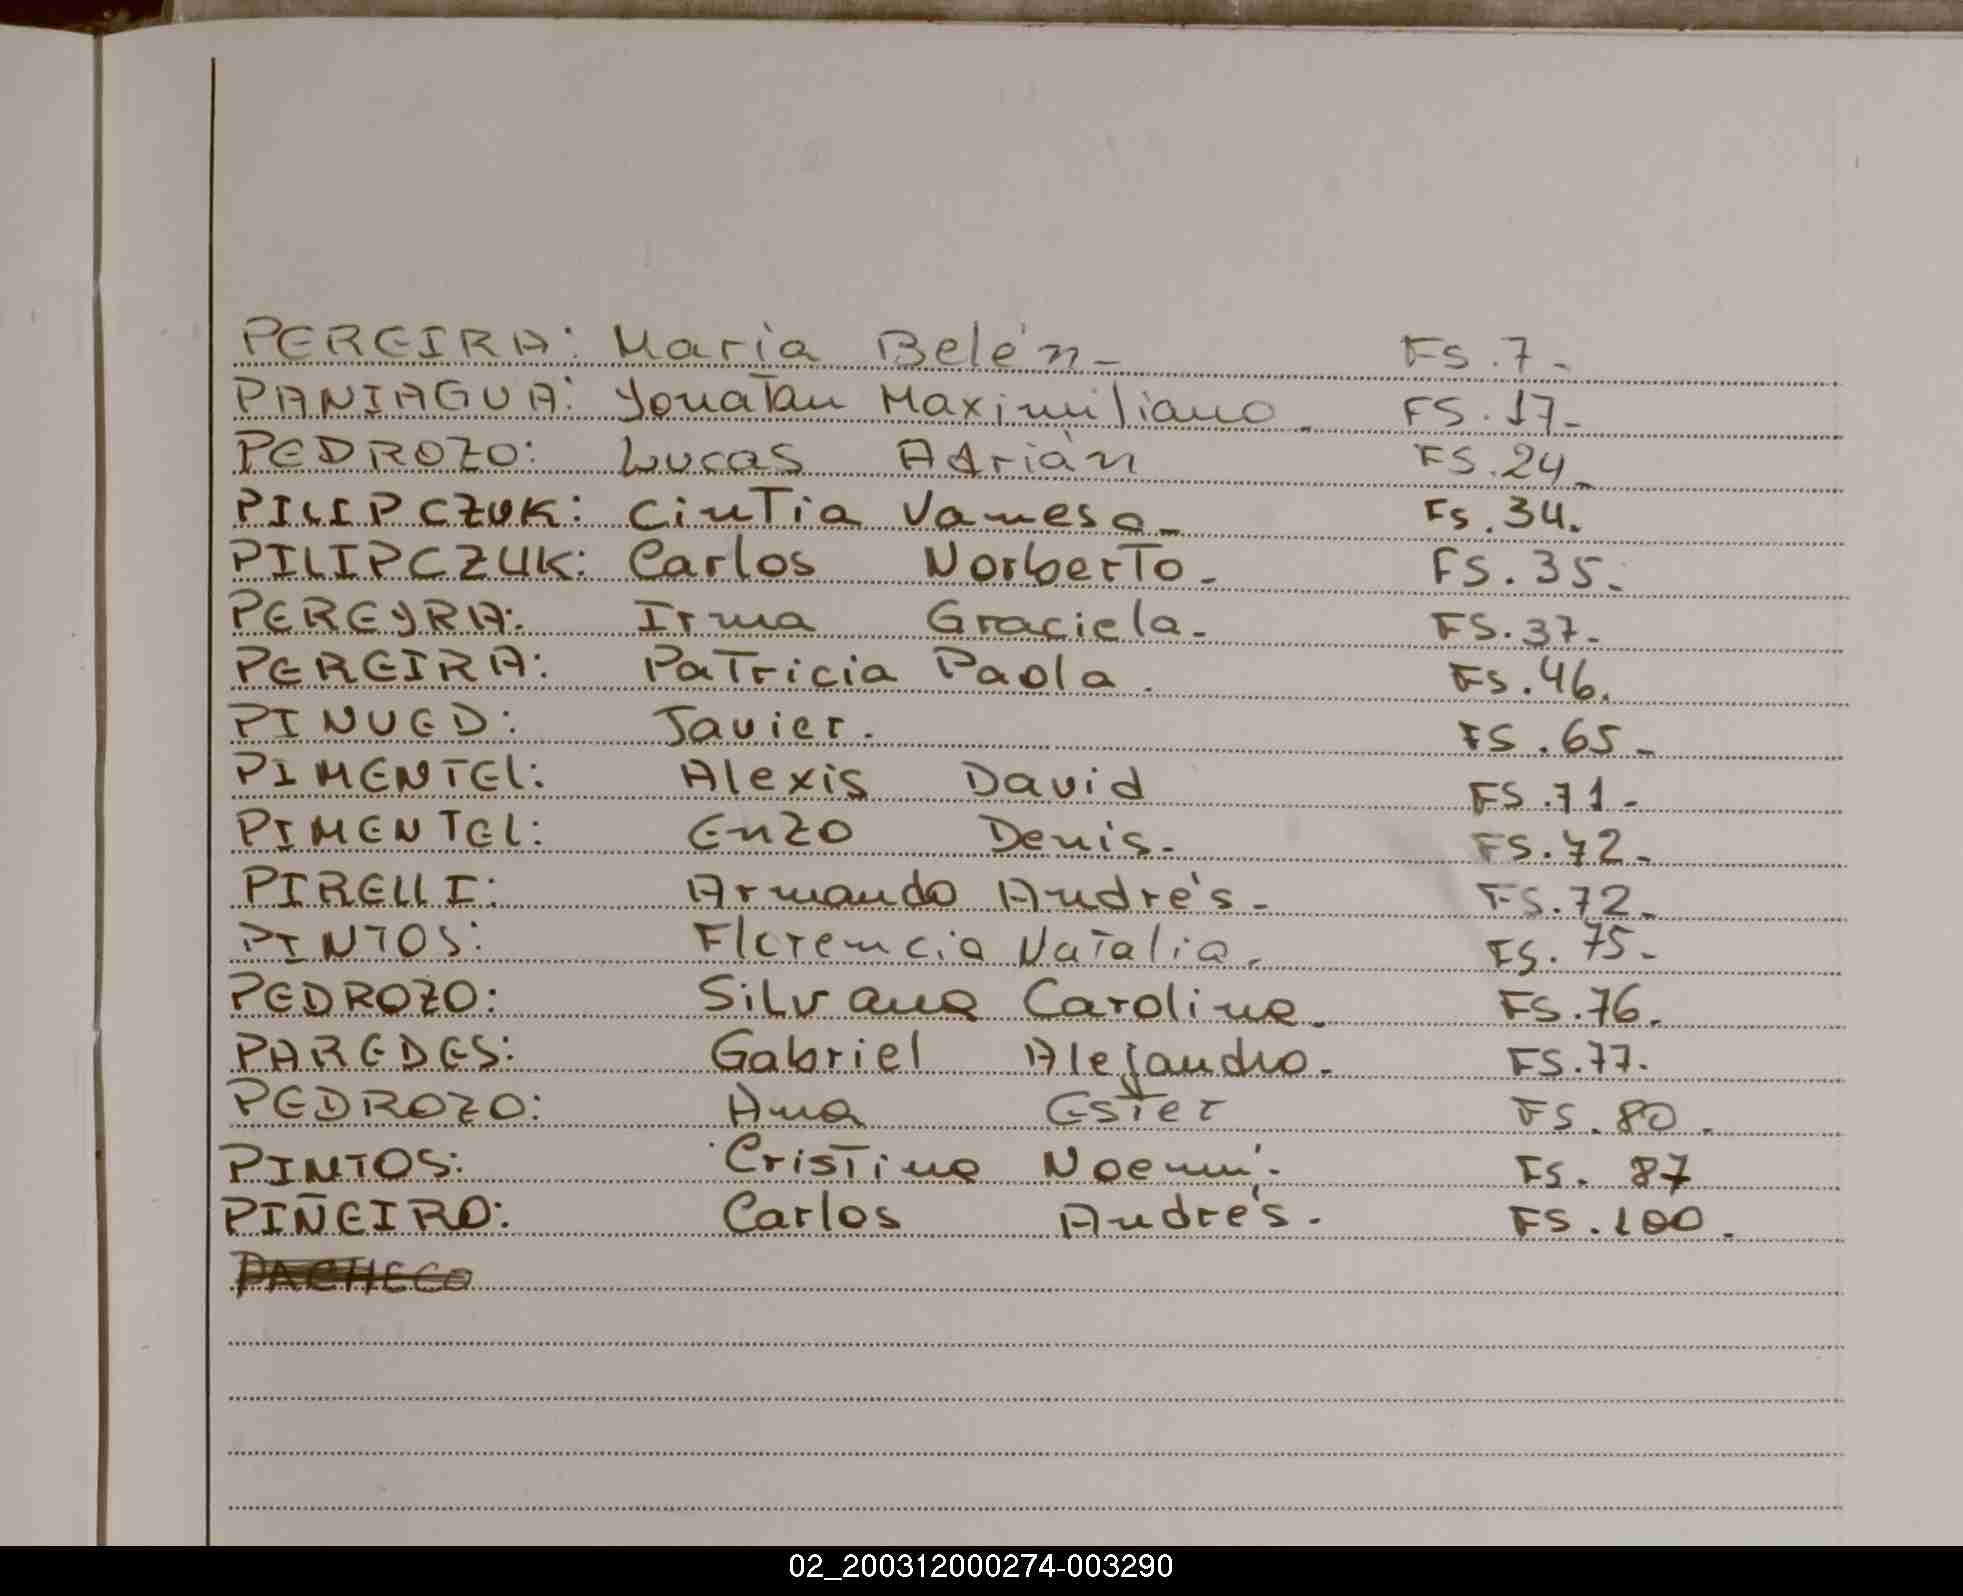 PEREIRA: María Belén- FS.7-
PANIAGUA: Yonatan Maximiliano- FS.17-
PEDROZO: Lucas Adrián FS.24-
PILIPCZUK: Cintia Vanesa- Fs.34.
PILIPCZUK: Carlos Norberto- FS.35-
PEREYRA: Irma Graciela- FS.37-
PEREIRA: Patricia Paola. Fs.46.
PINUED: Javier. FS.65-
PIMENTEL: Alexis David FS.71-
PIMENTEL: Enzo Denis- FS.72-
PIRELLI: Armando Andrés- FS.72-
PINTOS: Florencia Natalia- FS.75-
PEDROZO: Silvana Carolina- FS.76.
PAREDES: Gabriel Alejandro- FS.77.
PEDROZO: Ana Ester FS.80.
PINTOS: Cristina Noemí. FS. 87
PIÑEIRO: Carlos Andrés. FS.100.
PACHECO
02_200312000274-003290